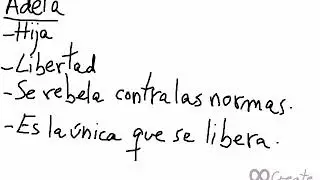 Adela
-Hija
-Libertad
-Se rebela contra las normas.
-Es la única que se libera.
Create